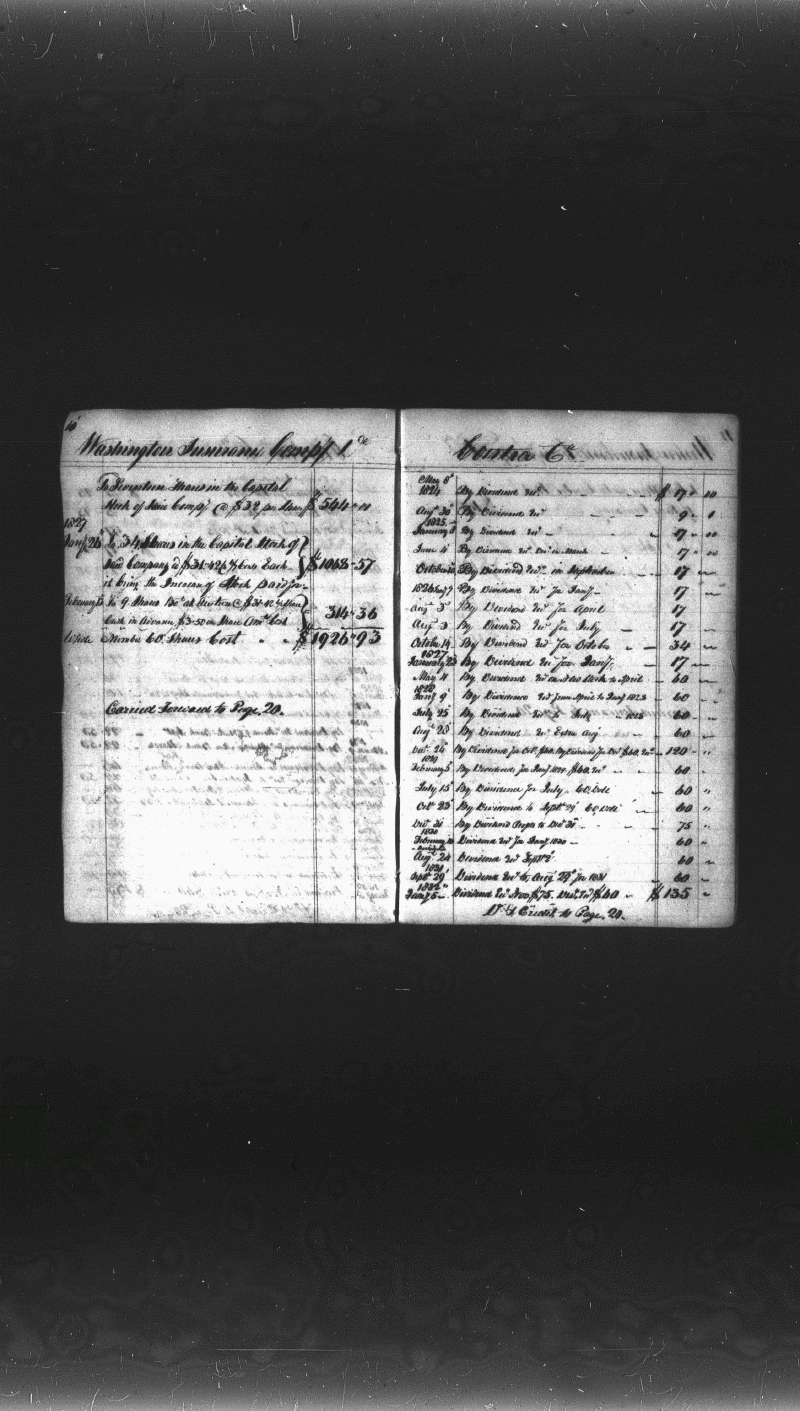 10
Washington Insurance Compy Dr
To Seventeen Shares in the Capital
Stock of Said Compy @ $32 per Share $ 544 - "
1827
Jany 26 To 34 Shares in the Capital Stock of
Said Company @ $31.42 Each $1068-57
it being the Increase of Stock paid for
February 6 To 9 Shares Bot at Auction @ $31.42 Share
Cash in Advance $3-50 on Share Amt Cost 314-36
Whole Number 60 Shares Cost $1926-93
Carried forward to Page 20.
11
Contra Cr
May 6
1824 By Dividend Recd $ 17 - "
Aug 30 By Dividend Recd 9 - "
1825
January 8 By Dividend Recd 17 - "
June 4 By Dividend Recd in March 17 - "
October By Dividend Recd in September 17 -
1826 By Dividend Recd for Jany 17 -
Aug 3 By Dividend Recd for April 17
Aug 3 By Dividend Recd for July 17 -
October 14 By Dividend Recd for October 34 -
1827
January 23 By Dividend Recd for Jany 17 -
May 4 By Dividend Recd on New Stock to April 60 -
1828
Jany 9 By Dividends Recd from April to Jany 1828 60 -
July 25 By Dividend Recd to July 1828 60 -
Aug 23 By Dividend Recd Extra Aug 60 -
Dec 24 By Dividend for Oct $60. By Dividend for Dec $60. Recd 120 - "
1829
February 5 By Dividend for Jany 1829 $60. Recd 60 "
July 15 By Dividend for July 60 "
Oct 23 By Dividend to Sept 29 60 "
Dec 31 By Dividend to Dec 31 75 "
1830
February Dividend Recd for Jany 1830 60 "
Aug 24 Dividend Recd 60 "
1831
Sept 29 Dividend Recd to Aug 29 for 1831 60 "
1832
Jany 5 Dividend Recd Nov $75. Dec $60 $ 135 "
Credit to Page 20.